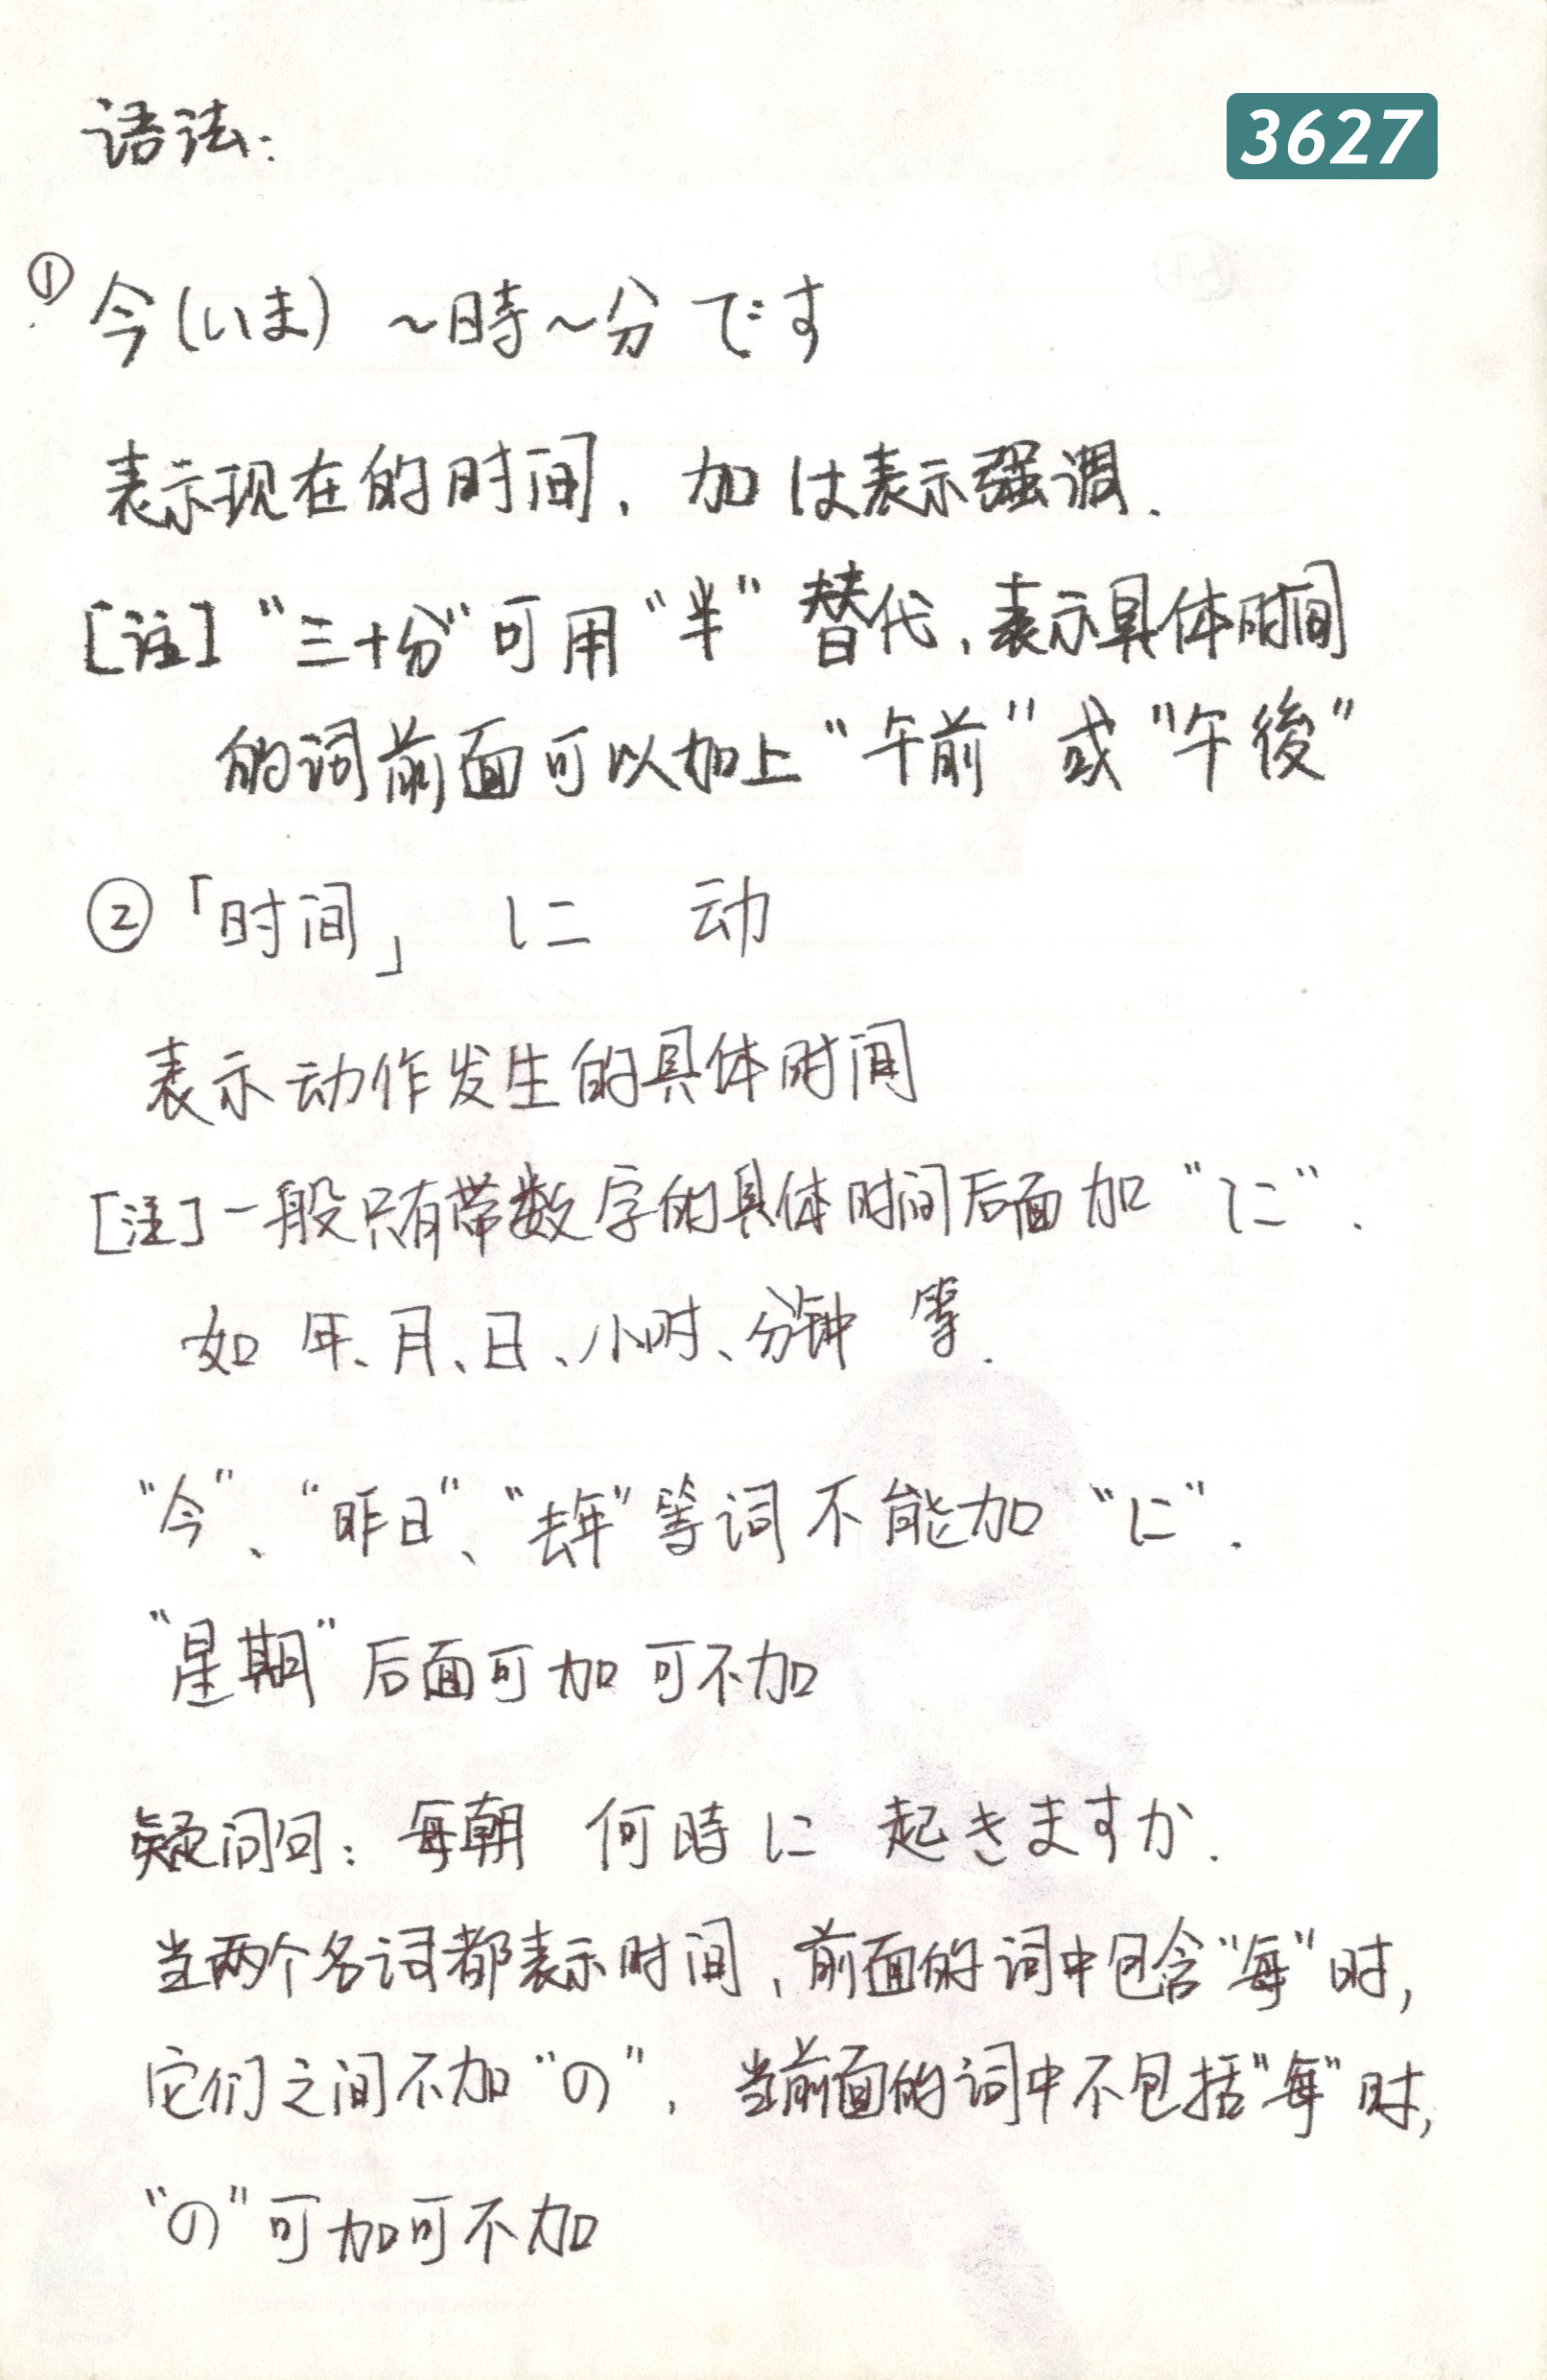 语法:
3627
① 今(いま) ～時～分 です
表示现在的时间, 加は表示强调.
[註] "三十分"可用"半" 替代, 表示具体时间
的词前面可以加上"午前"或"午後"
② 「时间」 に 动
表示动作发生的具体时间
[注] 一般只有带数字的具体时间后面加"に".
如 年、月、日、小时、分钟 等.
"今"、"昨日"、"去年"等词不能加"に".
"星期"后面可加可不加
疑问句: 每朝 何時に 起きますか.
当两个名词都表示时间, 前面的词中包含"每"时,
它们之间不加"の", 当前面的词中不包括"每"时,
"の"可加可不加